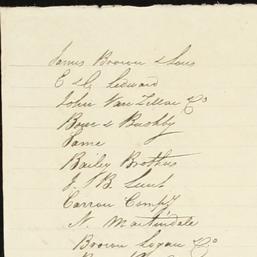 James Brown & Sons
E & G Leonard
John Van Co
Bowe & Bushby
Same
Bailey Brothers
J. B. Lunt
Carron Compy
N. Martindale
Brown Logan Co